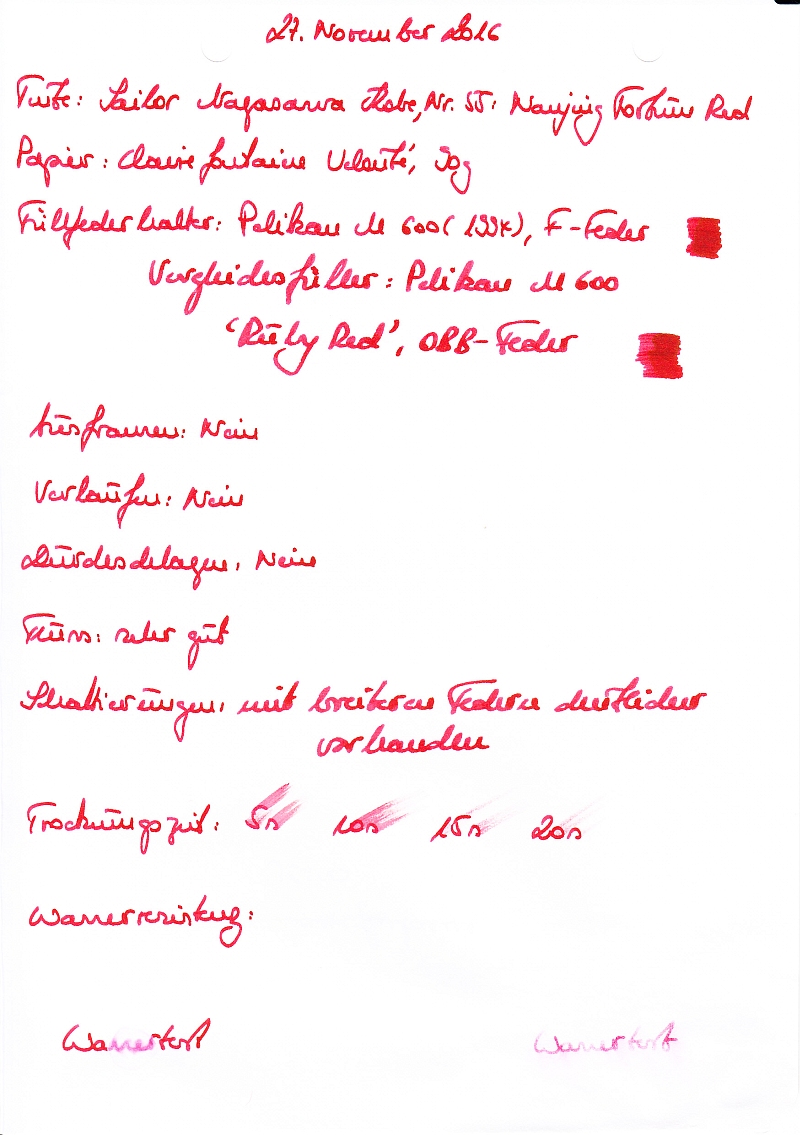 27. November 2016
Tinte: Sailor Nagasawa Kobe, Nr. 55: Nanjing Fortune Red
Papier: Clairefontaine Velouté, 90g
Füllfederhalter: Pelikan M 600 (1997), F-Feder
Vergleichsfüller: Pelikan M 600
'Ruby Red', OBB-Feder
Ausfransen: Nein
Verlaufen: Nein
Durchschlagen: Nein
Fluss: sehr gut
Schattierungen: mit breiteren Federn deutlicher
vorhanden
Trocknungszeit: 5s 10s 15s 20s
Wasserresistenz:
Wassertest Wassertest